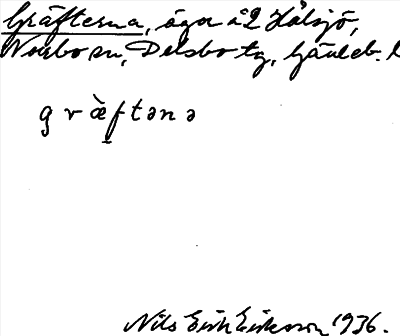 Gräfterna, ägor å 2 Hålsjö,
Norrbo sn, Delsbo tg, Gävleb. l
grä̀ftənə
Nils Erik Eriksson 1936.